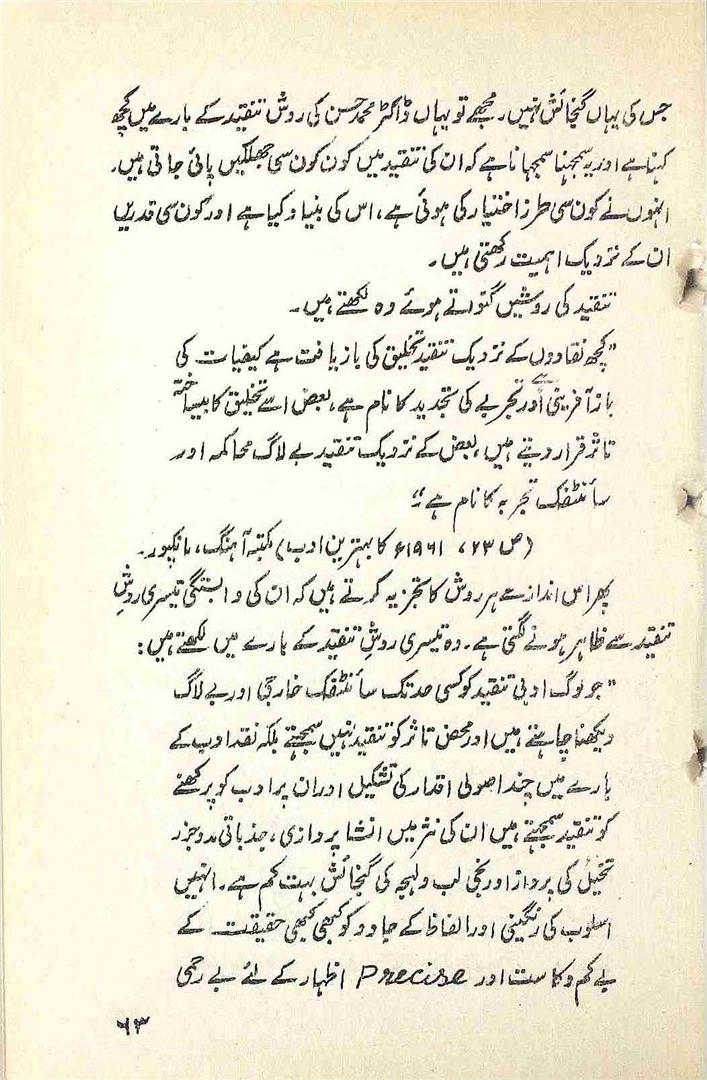 جس کی یہاں گنجائش نہیں۔ مجھے تو یہاں ڈاکٹر محمد حسن کی روش تنقید کے بارے میں کچھ
کہنا ہے اور یہ سمجھنا سمجھانا ہے کہ ان کی تنقید میں کون کون سی جھلکیں پائی جاتی ہیں۔
انہوں نے کون سی طرز اختیار کی ہوئی ہے، اس کی بنیاد کیا ہے اور کون سی قدریں
ان کے نزدیک اہمیت رکھتی ہیں۔
تنقید کی روشیں گنواتے ہوئے وہ لکھتے ہیں۔
"کچھ نقادوں کے نزدیک تنقید تخلیق کی بازیافت ہے کیفیات کی
باز آفرینی اور تجربے کی تجدید کا نام ہے، بعض اسے تخلیق کا بیساختہ
تاثر قرار دیتے ہیں، بعض کے نزدیک تنقید بے لاگ محاکمہ اور
سائنٹفک تجربہ کا نام ہے۔"
(ص ۲۳، ۱۹۶۱ء کا بہترین ادب) مکتبہ آہنگ،
پھر اس انداز سے ہر روش کا تجزیہ کرتے ہیں کہ ان کی وابستگی تیسری روشِ
تنقید سے ظاہر ہونے لگتی ہے۔ وہ تیسری روشِ تنقید کے بارے میں لکھتے ہیں:
"جو لوگ ادبی تنقید کو کسی حد تک سائنٹفک خارجی اور بے لاگ
دیکھنا چاہتے ہیں اور محض تاثر کو تنقید نہیں سمجھتے بلکہ نقد ادب کے
بارے میں چند اصولی اقدار کی تشکیل اور ان پر ادب کو پرکھنے
کو تنقید سمجھتے ہیں ان کی نثر میں انشا پردازی، جذباتی مدوجزر
تخیل کی پرواز اور نجی لب ولہجہ کی گنجائش بہت کم ہے۔ انہیں
اسلوب کی رنگینی اور الفاظ کے جادو کو کبھی کبھی حقیقت کے
بے کم وکاست اور Precise اظہار کے لئے بے رحمی
۶۳